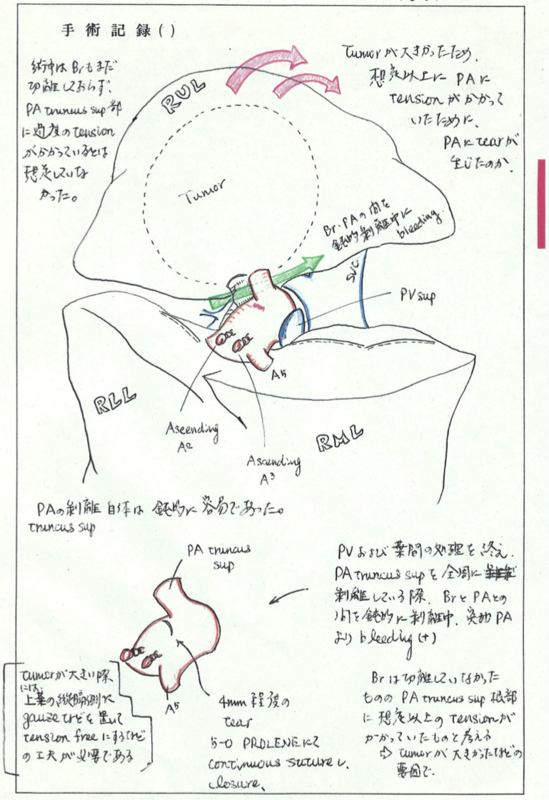 手術記録( )
術中はBrもまだ
切離しておらず、
PA truncus sup 部
に過度のtension
がかかっているとは
想定していな
かった。
RUL
Tumorが大きかったため、
想定以上に PAに
tension がかかって
いたために、
PAにtearが
生じたのか。
Tumor
Br・PAの間を
鈍的剥離中に
bleeding.
SVC
PV sup
A5
RLL
Ascending
A2
Ascending
A3
RML
PAの剥離自体は 鈍的に 容易であった。
truncus sup
PA truncus
sup
A5
4mm 程度の
tear
5-0 PROLENEにて
continuous suture し、
closure.
tumorが大きい際
には、
上葉の縦隔側に
gauzeなどを置いて
tension freeにするなど
の工夫が必要である
PVおよび 葉間の処理を終え、
PA truncus supを全周に
剥離している際、BrとPAとの
間を鈍的に剥離中、突如PA
より bleeding (+)
Brは切離していなかった
ものの PA truncus sup 根部
に想定以上のtensionが
かかっていたものと考える
⇨ tumorが大きかったなどの
要因で。